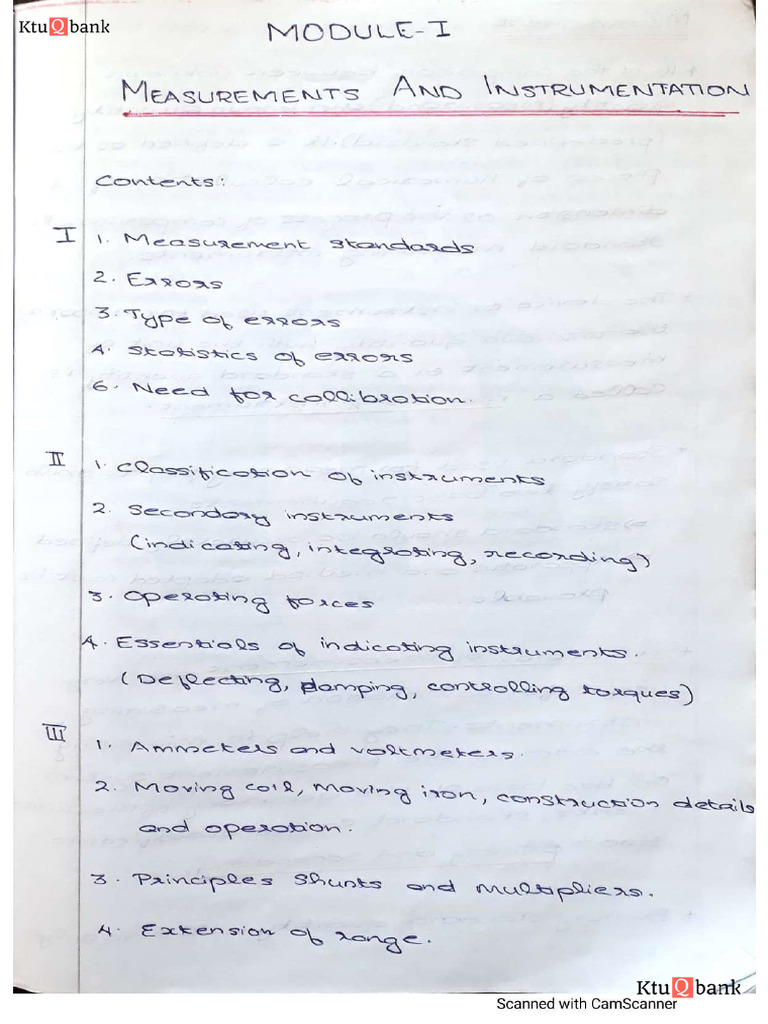 KtuQbank
MODULE-I
MEASUREMENTS AND INSTRUMENTATION
Contents:
I 1. Measurement standards
2. Errors
3. Type of errors
4. Statistics of errors
6. Need for collibration.
II 1. Classification of instruments
2. Secondary instruments
(indicating, integrating, recording)
3. Operating forces
4. Essentials of indicating instruments.
(Deflecting, damping, controlling torques)
III 1. Ammeters and voltmeters.
2. Moving coil, moving iron, construction details
and operation.
3. Principles shunts and multipliers.
4. Extension of range.
KtuQbank
Scanned with CamScanner